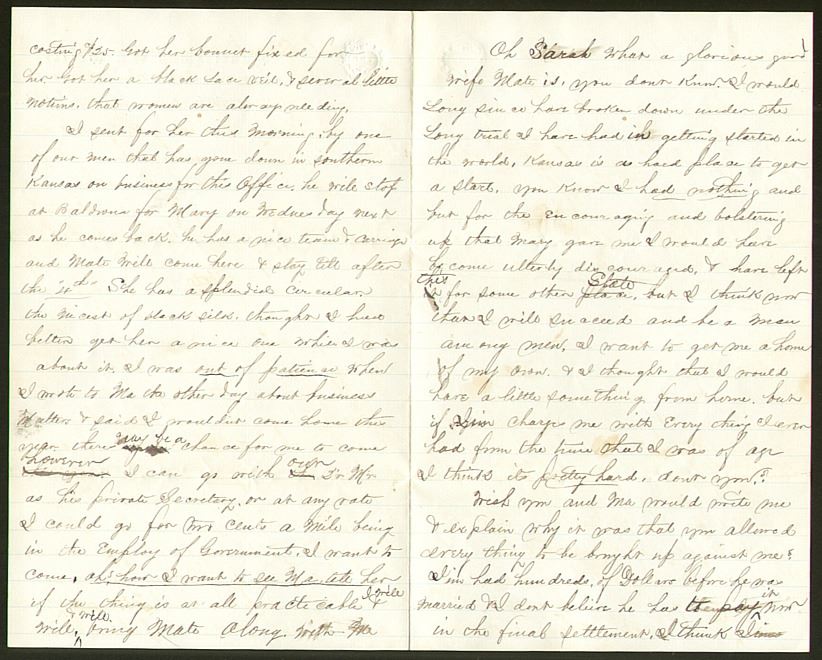 costing $25. Got her bonnet fixed for
her Got her a black Lace veil, & several little
notions, that women are always needing.
I sent for her this Morning, by one
of our men that has gone down in southern
Kansas on business for this Office, he will stop
at Baldwins for Mary on Wednesday next
as he comes back. he has a nice team & carriage
and Mate will come here & stay till after
the 4th She has a splendid Circular.
the nicest of black silk. thought I had
better get her a nice one while I was
about it. I was out of patience when
I wrote to Ma the other day about business
Matters & said I wouldnt come home this
year there may be a chance for me to come
however I can go with our Dr Mr
as his private Secretary, or at any rate
I could go for two cents a Mile being
in the Employ of Government. I want to
come, oh: how I want to see Ma tell her
if the thing is at all practicable I will &
will, & will bring Mate along. with me
Oh Sarah what a glorious good
wife Mate is, you dont know. I would
Long since have broken down under the
Long trial I have had in getting started in
the world, Kansas is a hard place to get
a start, you know I had nothing and
but for the encouraging and bolstering
up that Mary gave me I would have
become utterly discouraged, & have left
this for some other State place, but I think now
that I will succeed and be a man
among men, I want to get me a home
of my own. & I thought that I would
have a little something from home. but
if Jim charge me with Every thing I ever
had from the time that I was of age
I think its pretty hard, dont you?
Wish you and Ma would write me
& explain why it was that you allowed
every thing to be bought up against me?
Jim had hundreds of Dollars before he was
married & I dont believe he has it now
in the final settlement, I think Jim